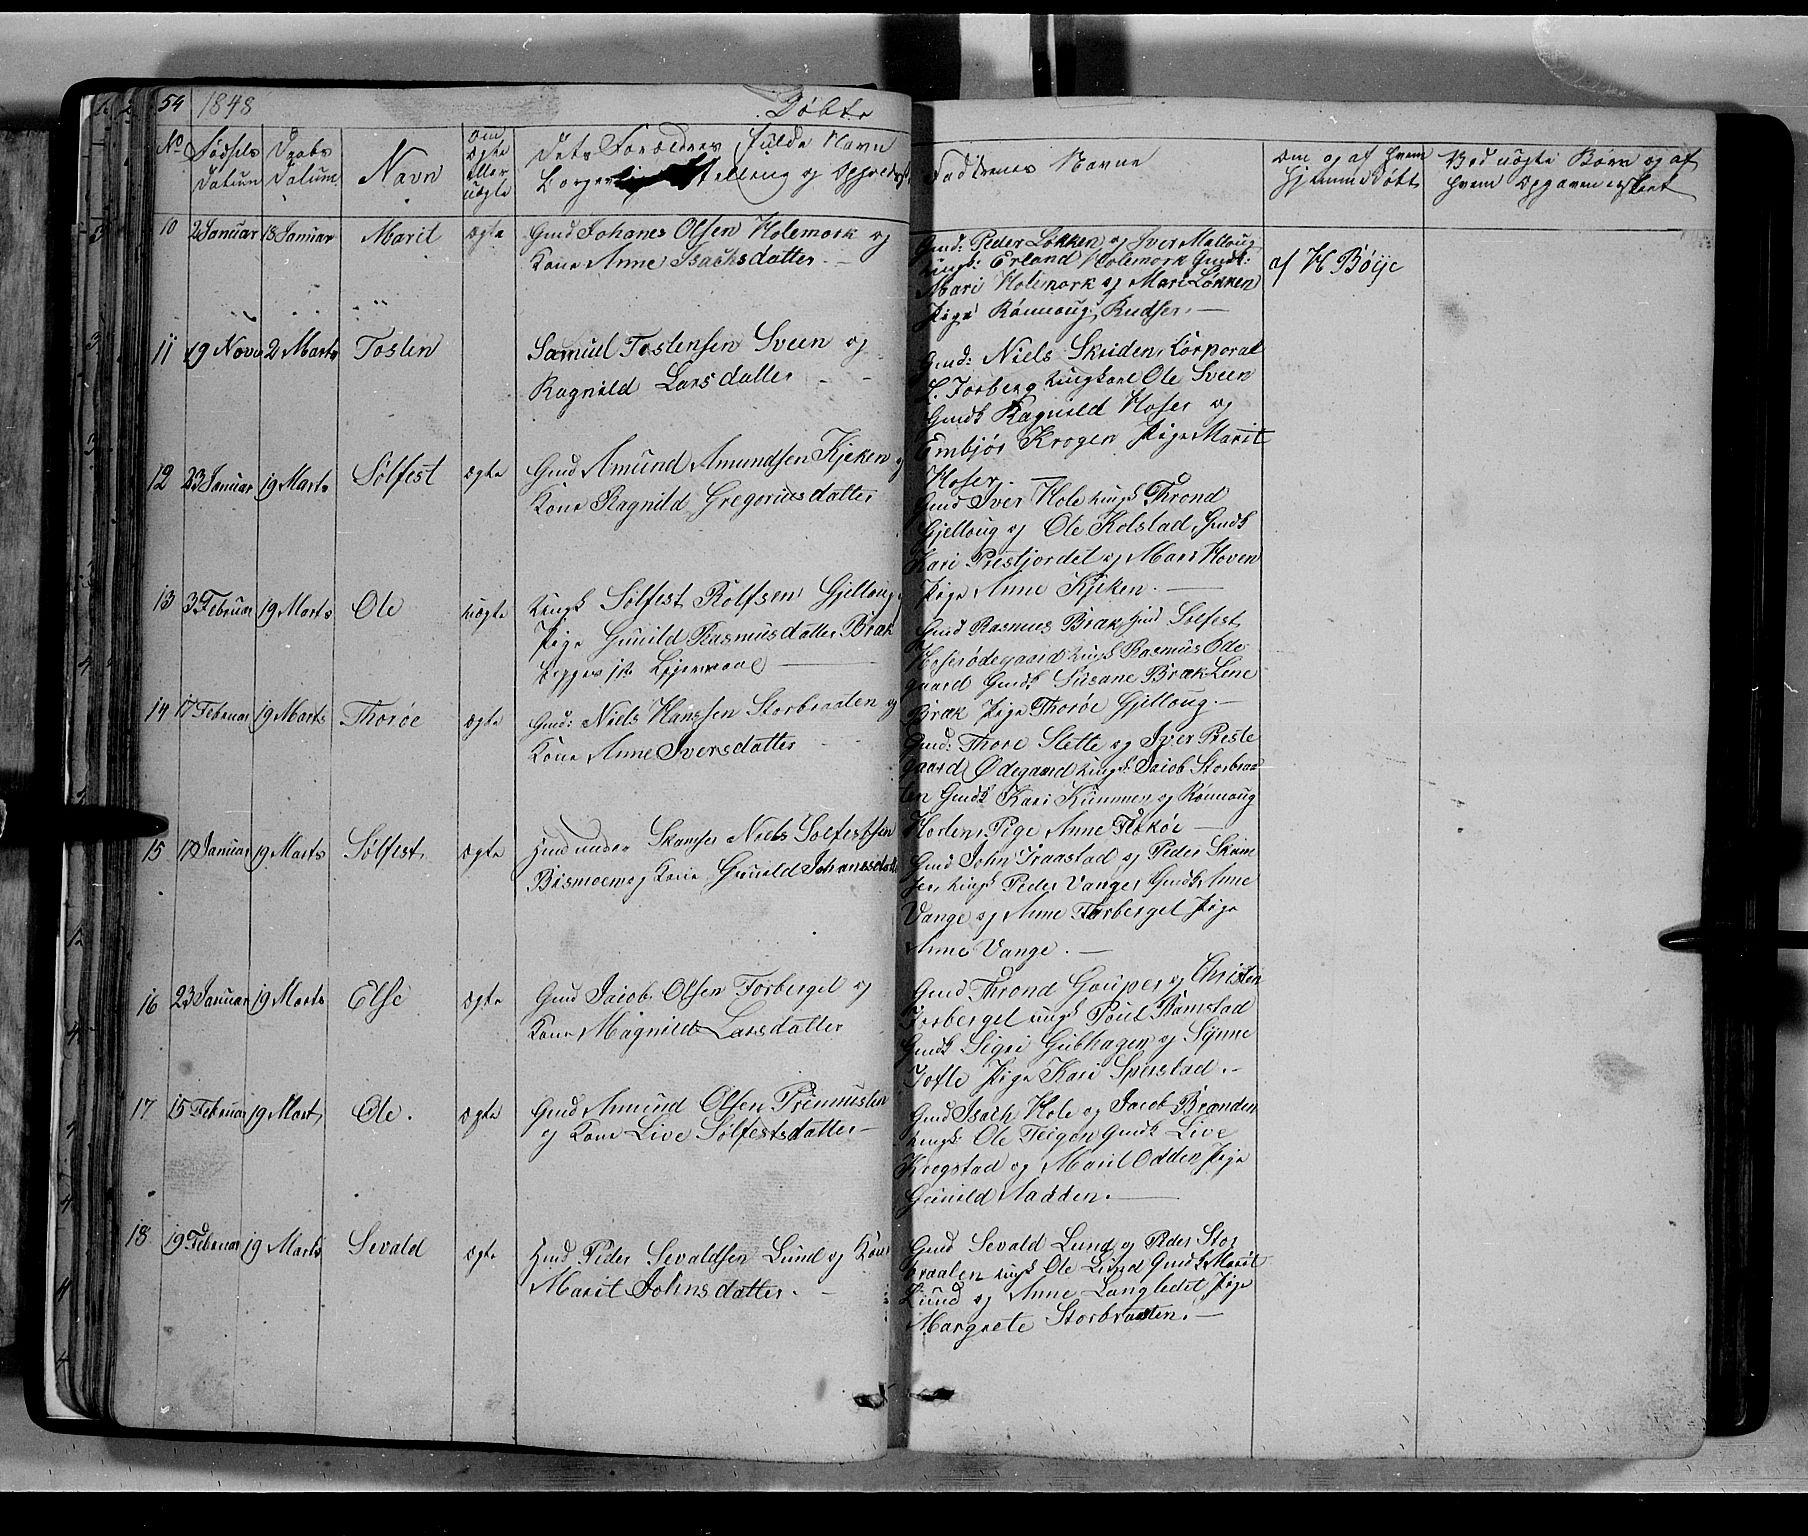 54 1848 Døbte
No Fødsels Datum Daabs Datum Navn Om ægte eller uægte Dets Forældres fulde Navn
Borgerlig Stilling og Opholdst
Faddernes Navne
Om og af hvem
hjemmedøbt
Ved uægte Børn og af
hvem Opgaven
10 2 Januar 13 Januar Marit ægte Gmd Johanes Olsen Holemork og
Kone Anne Isachsdatter. –
Gmd: Peder Løkken og Iver Malloug
Ungk: Erland Holemork Gmdk:
Mari Holemork og Mari Løkken
Pige Rønnoug Rudser. –
af H Böije
11 19 Novr 2 Marts Tosten Samuel Tostensen Sveen og
Ragnild Larsdatter – –
Gmd: Niels Skriden, Korporal
Forberg Ungkarl Ole Sveen
Gmdk Ragnild Hofer og
Embjør Krogen Pige Marit
Hofer. –
12 23 Januar 19 Marts Sølfest ægte Gmd Amund Amundsen Kjeken og
Kone Ragnild Gregoriusdatter
Gmd Iver Hole Ungk Thrond
Gjelloug og Ole Kolstad, Gmdk
Kari Prestjordet og Mari Hoven
Pige Anne Kjeken. –
13 3 Februar 19 Marts Ole uægte Ungk Sølfest Rolfsen Gjelloug
Pige Gunild Rasmusdatter Bræk
Begges 1ste Leiermaal –
Gmd Rasmus Bræk Gmd Sølfest
Hoferødegaard Ungk Rasmus Øde
gaard Gmdk Susane Bræk Lene
Bræk Pige Thorøe Gjelloug. –
14 17 Februar 19 Marts Thorøe ægte Gmd: Niels Hanssen Storbraaten og
Kone Anne Iversdatter –
Gmd: Thore Slette og Iver Preste
gaard Ødegaard Ungk: Jacob Storbraa
ten Gmdk Kari Kummen og Rønnoug
Horten, Pige Anne Flækøe –
15 19 Januar 19 Marts Sølfest ægte Hmd under Skamser Niels Sølfestsen
Bismoemo og Kone Gunild Johannsdatte
Gmd John Graastad og Peder Skam
ser, Ungk Peder Vange, Gmdk Anne
Vange og Anne Forberget Pige
Anne Vange. –
16 23 Januar 19 Marts Else ægte Gmd Jacob Olsen Forberget og
Kone Magnild Larsdatter
Gmd Thrond Gouper og Christen
Forberget Ungk Poul Ramstad
Gmdk Sigri Gubhagen og Synne
Tofte Pige Kari Sperstad. –
17 15 Februar 19 Mart, Ole. ægte Gmd Amund Olsen Premusten
og Kone Live Sølfestsdatter –
Gmd Isach Hole og Jacob Brænden
Ungk: Ole Teigen Gmdk Live
Krogstad og Marit Odden, Pige
Gunild Nadden. –
18 19 Februar 19 Marts Sevald ægte Hmd Peder Sevaldsen Lund og Kone
Marit Johnsdatter. –
Gmd Sevald Lund og Peder Stor
braaten Ungk Ole Lund Gmdk Marit
Lund og Anne Langledet Pige
Margrete Storbraaten. –